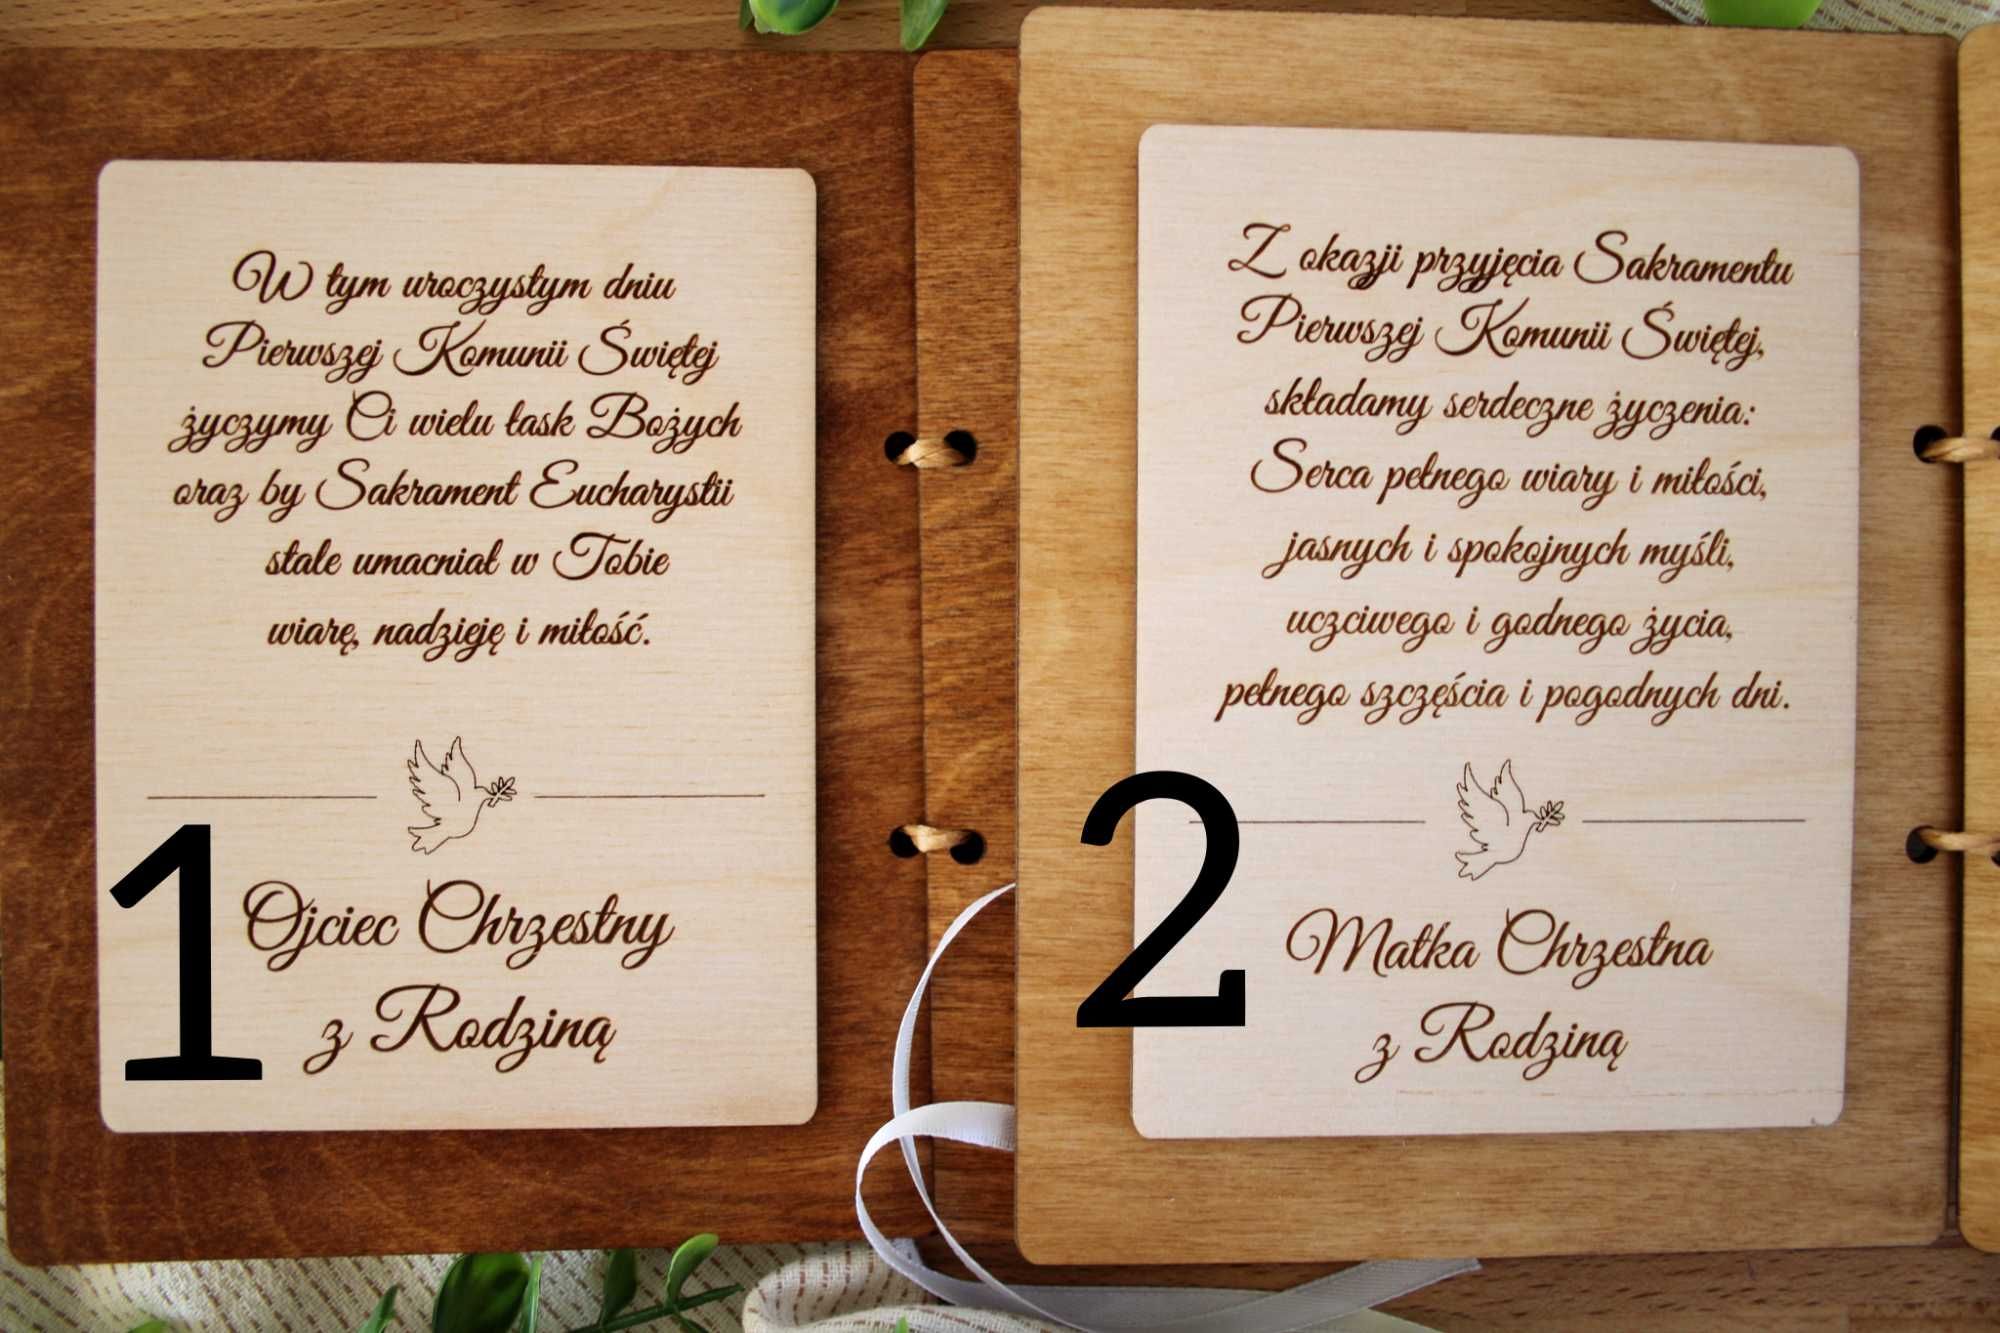 W tym uroczystym dniu
Pierwszej Komunii Świętej
życzymy Ci wielu łask Bożych
oraz by Sakrament Eucharystii
stale umacniał w Tobie
wiarę, nadzieję i miłość.
1
Ojciec Chrzestny
z Rodziną
Z okazji przyjęcia Sakramentu
Pierwszej Komunii Świętej,
składamy serdeczne życzenia:
Serca pełnego wiary i miłości,
jasnych i spokojnych myśli,
uczciwego i godnego życia,
pełnego szczęścia i pogodnych dni.
2
Matka Chrzestna
z Rodziną